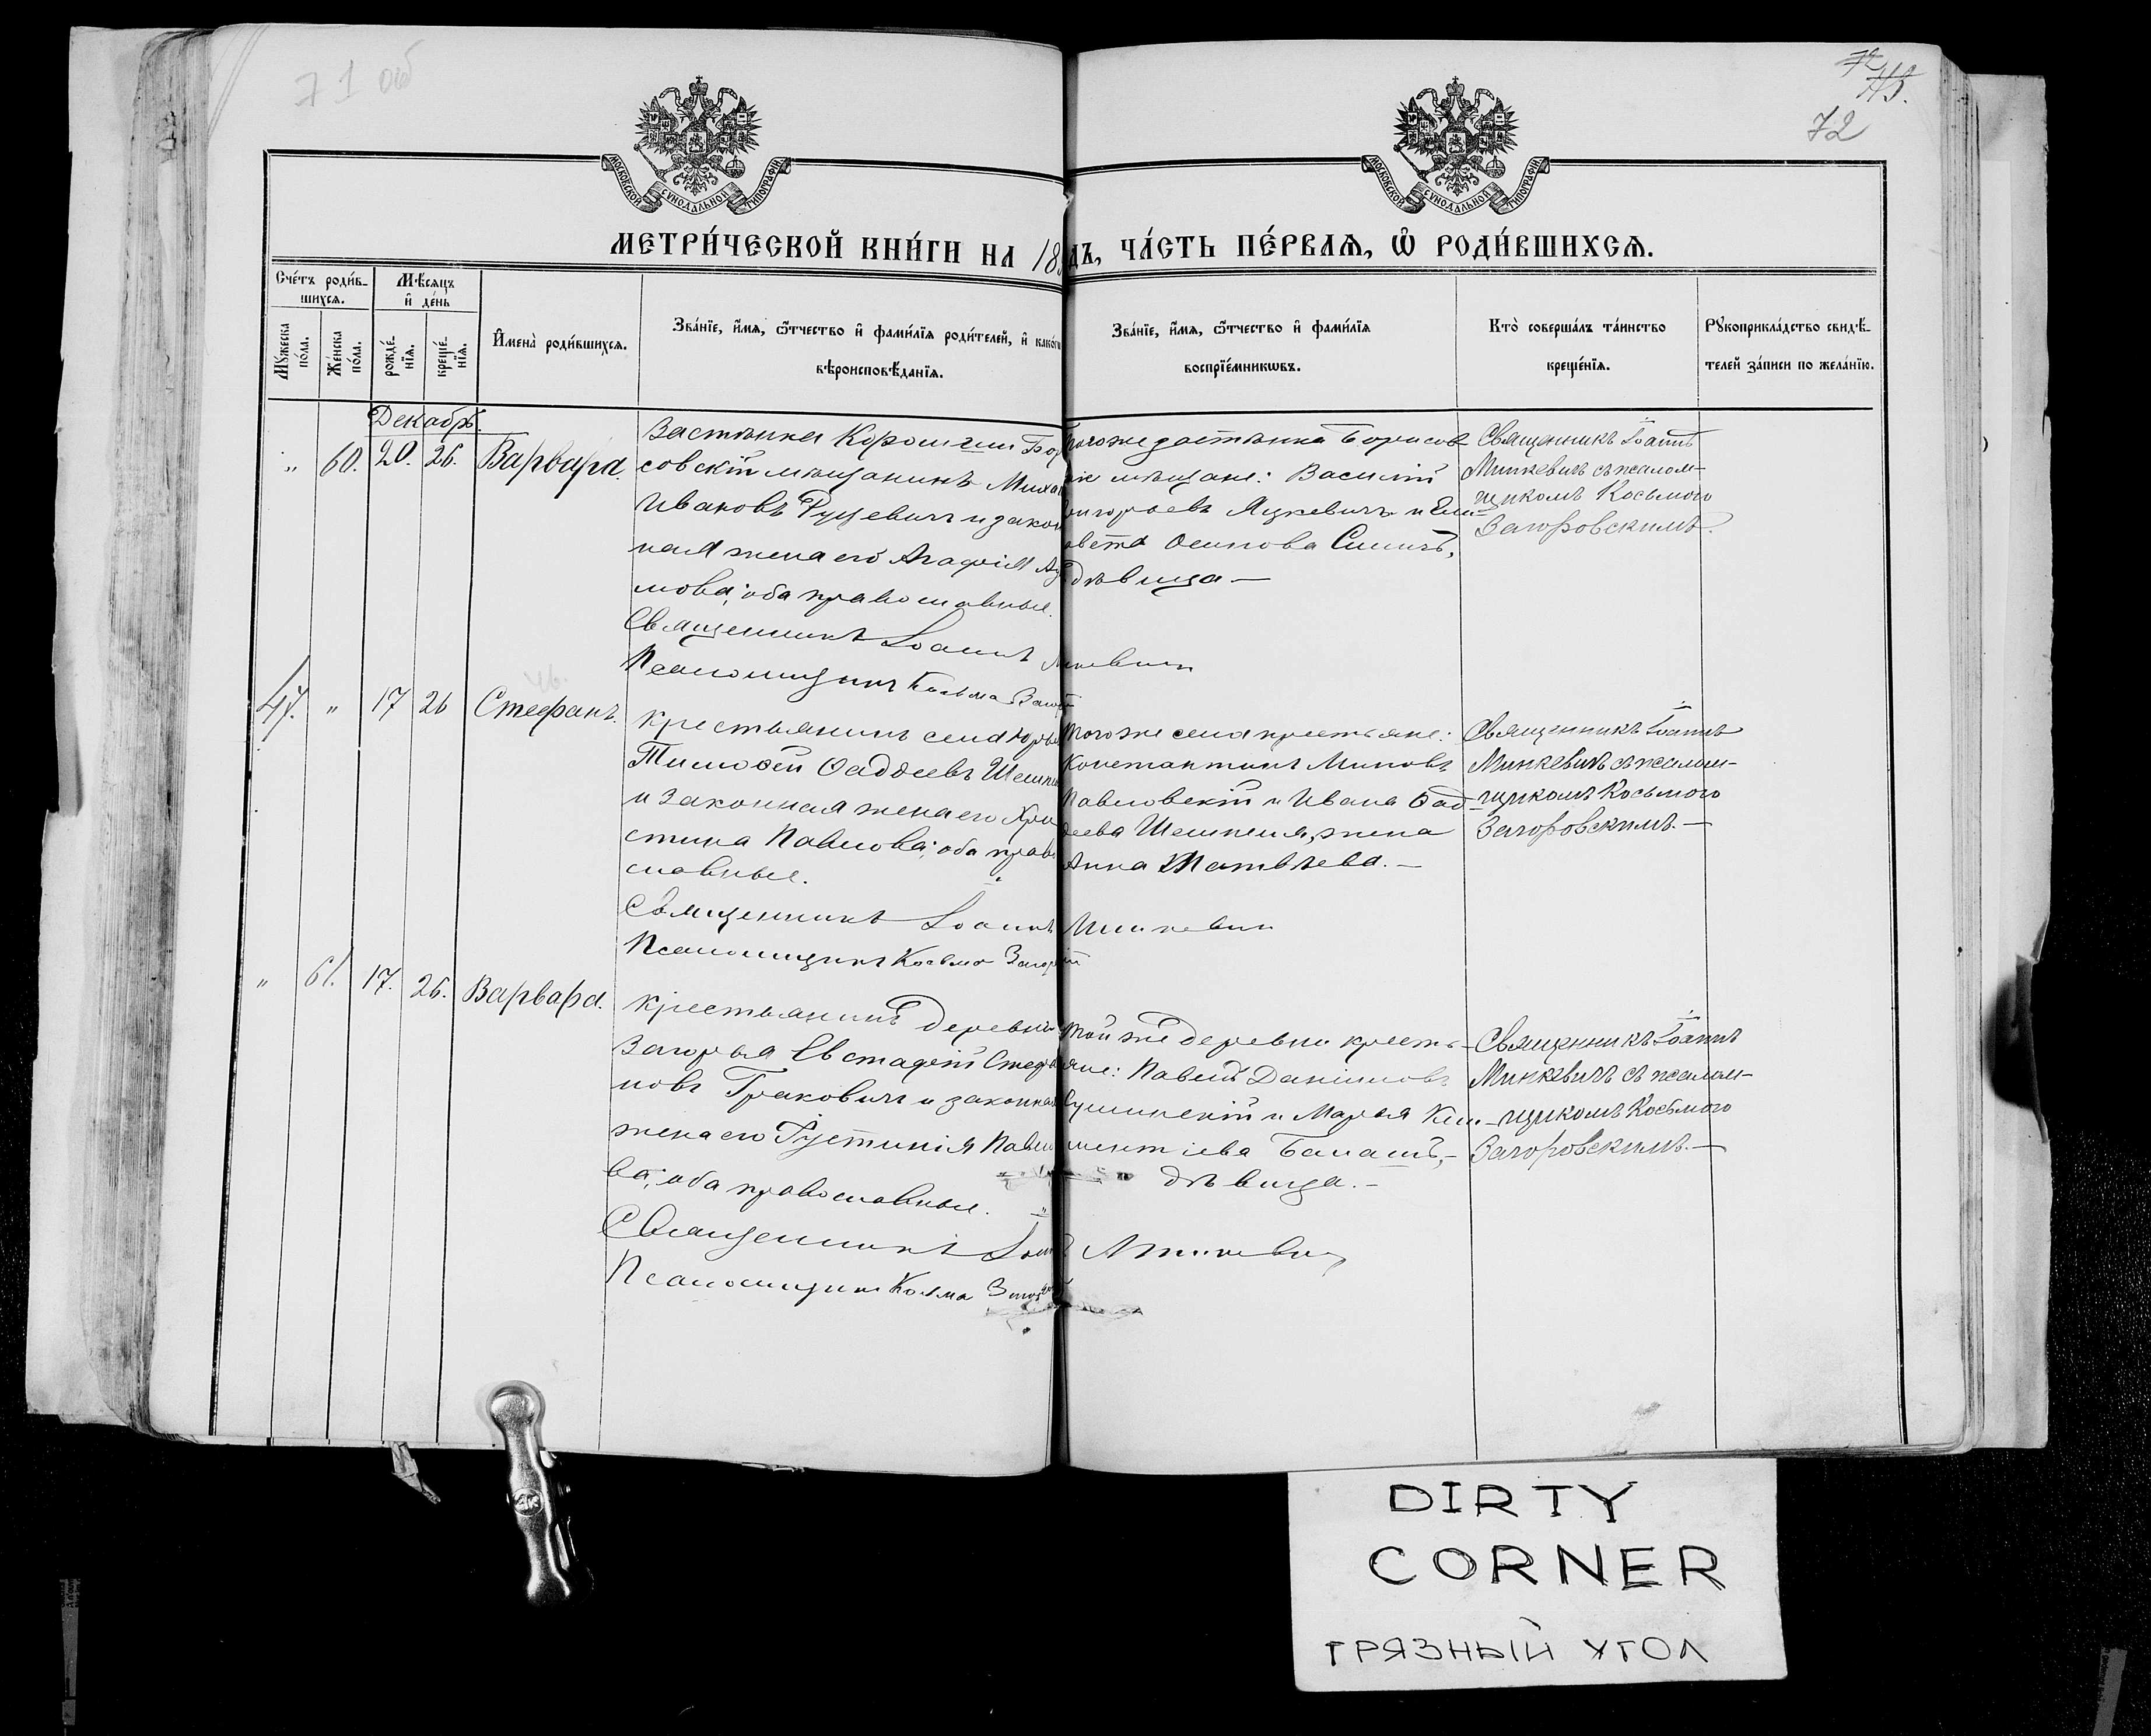 71 об
72
115.
72
МОСКОВСКОЙ СѴНОДАЛЬНОЙ ТИПОГРАФІИ
МОСКОВСКОЙ СѴНОДАЛЬНОЙ ТИПОГРАФІИ
МЕТРИ́ЧЕСКОЙ КНИ́ГИ НА 18
дъ, ЧА́СТЬ ПЕ́РВАѦ, Ѡ҆ РОДИ́ВШИХСѦ.
Сче́тъ роди́в-
шихсѧ.
Мѣ́сѧцъ
и҆ де́нь
Мꙋ́жеска
по́ла.
Же́нска
по́ла.
рожде́-
нїѧ.
креще́-
нїѧ.
И҆мена̀ роди́вшихсѧ.
Зва́нїе, и҆́мѧ, ѻ҆́тчество и҆ фами́лїѧ роди́телей, и҆ како́гѡ
вѣроисповѣ́данїѧ.
Зва́нїе, и҆́мѧ, ѻ҆́тчество и҆ фами́лїѧ
воспрїе́мникѡвъ.
Кто̀ соверша́лъ та́инство
креще́нїѧ.
Рꙋкоприкла́дство свидѣ́-
телей за́писи по жела́нїю.
Декабрь.
" 60. 20. 26. Варвара.
Застѣнка Бор
совскій мѣщанинъ Миха
Ивановъ Руцевичъ и закон
ная жена его Агафія
мова; оба православные.
Священникъ Іоаннъ
Псаломщикъ Косьма
тогоже застѣнка Борисов
кіе мѣщане: Василій
григорьевъ Яцкевичъ и Ели-
авета Осипова
дѣвица —
Священникъ Іоаннъ
Минкевичъ съ псалом-
щикомъ Косьмою
Загоровскимъ.
47. " 17 26 Стефанъ.
Крестьянинъ села Юрье
Тимоѳей Ѳаддеевъ
и законная жена его Хри
стина Павлова; оба право
славные.
Священникъ Іоаннъ Минкевич
Псаломщикъ Косьма
того же села крестьяне:
Константинъ Миновъ
Павловскій и Ивана Ѳад-
деева жена
Анна Матвѣева. —
Священникъ Іоаннъ
Минкевичъ съ псалом-
щикомъ Косьмою
Загоровскимъ. —
" 61. 17. 26. Варвара.
Крестьянинъ деревни
Загорья Евстафій Стефа
новъ Граковичъ и законная
жена его Густинія Павло
ва; оба православные.
Священникъ
Псаломщикъ Косьма
Той же деревни кресть-
яне: Павелъ Даніиловъ
и Марья Кли-
ментіева
дѣвица. —
Священникъ Іоаннъ
Минкевичъ съ псалом-
щикомъ Косьмою
Загоровскимъ. —
DIRTY
CORNER
ГРЯЗНЫЙ УГОЛ